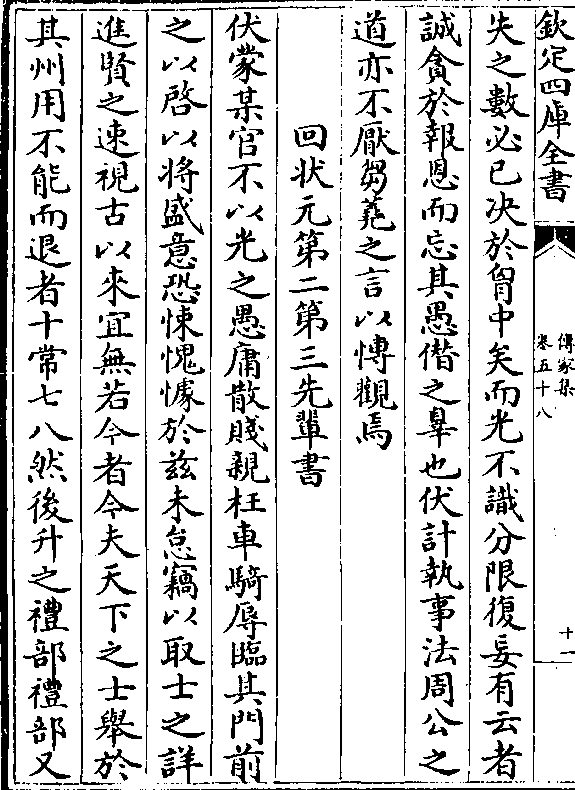 欽定四庫全書
傳家集
卷五十八
十一
失之數必已决於胷中矣而光不識分限復妄有云者
誠貪於報恩而忘其愚僭之辠也伏計執事法周公之
道亦不厭芻蕘之言以慱觀焉
回状元第二第三先輩書
伏蒙某官不以光之愚庸散賤親枉車騎辱臨其門前
之以啓以将盛意恐悚愧懅於兹未怠竊以取士之詳
進賢之速視古以來宜無若今者今夫天下之士舉於
其州用不能而退者十常七八然後升之禮部禮部又